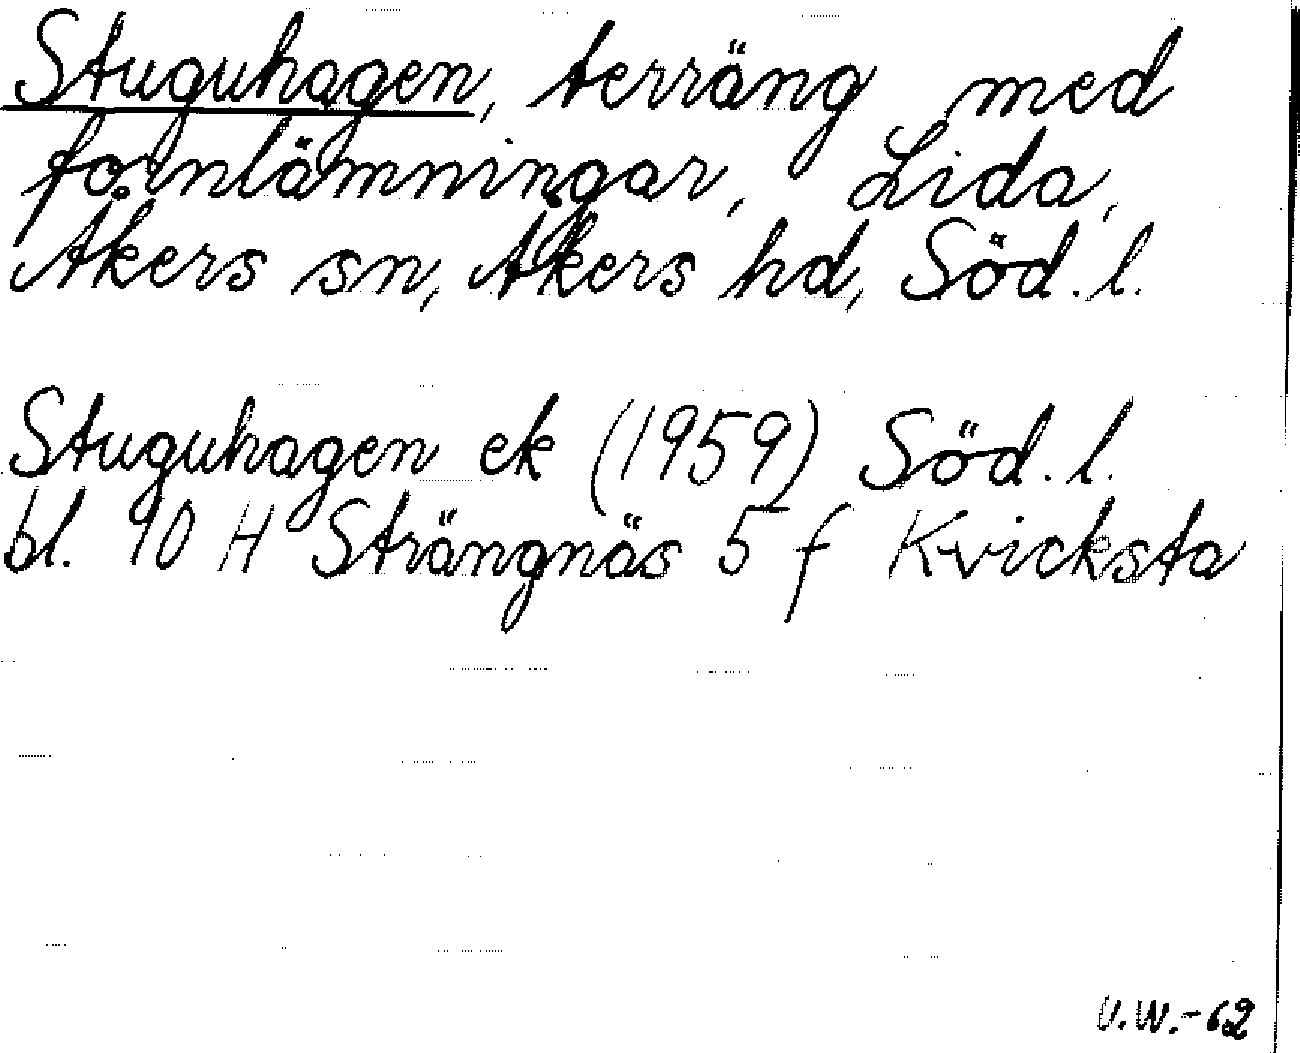 Stuguhagen, terräng med
fornlämningar, Lida,
Åkers sn, Åkers hd, Söd. l.
Stuguhagen ek (1959) Söd. l.
bl. 10 H Strängnäs 5 f Kvicksta
V.W.-62